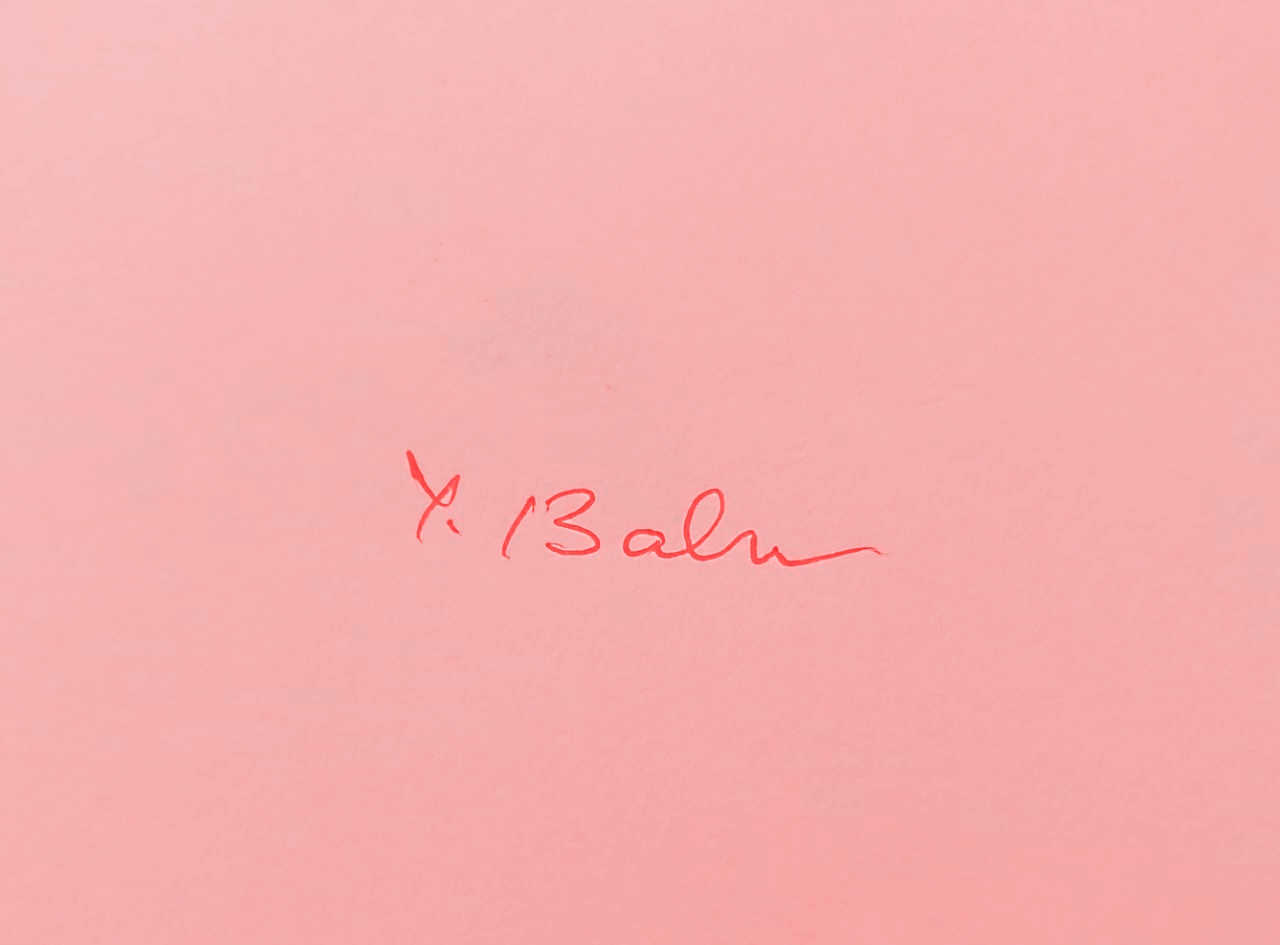 Y. Balm